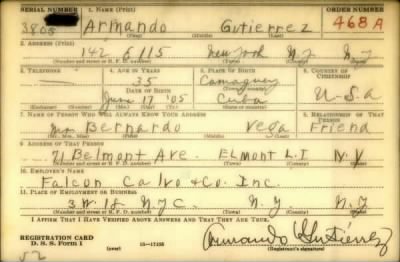 SERIAL NUMBER 1. NAME (Print) ORDER NUMBER
3805 Armando Gutierrez 468A
(First) (Middle) (Last)
2. ADDRESS (Print)
142 E 115 New York N.Y N.Y
(Number and street or R. F. D. number) (Town) (County) (State)
3. TELEPHONE 4. AGE IN YEARS 5. PLACE OF BIRTH 6. COUNTRY OF CITIZENSHIP
35 Camaguey
DATE OF BIRTH (Town or county)
June 17 '05 Cuba U-S-a
(Exchange) (Number) (Mo.) (Day) (Yr.) (State or country)
7. NAME OF PERSON WHO WILL ALWAYS KNOW YOUR ADDRESS 8. RELATIONSHIP OF THAT PERSON
Mr Bernardo Vega Friend
(Mr., Mrs., Miss) (First) (Middle) (Last)
9. ADDRESS OF THAT PERSON
71 Belmont Ave. ELmont L.I N.Y
(Number and street or R. F. D. number) (Town) (County) (State)
10. EMPLOYER'S NAME
Falcon Calvo & Co. Inc.
11. PLACE OF EMPLOYMENT OR BUSINESS
3 W. 18 N.Y.C. N.Y. N.Y
(Number and street or R. F. D. number) (Town) (County) (State)
I AFFIRM THAT I HAVE VERIFIED ABOVE ANSWERS AND THAT THEY ARE TRUE.
REGISTRATION CARD
D. S. S. FORM 1 (over) 16—17105 Armando Gutiérrez
(Registrant's signature)
52